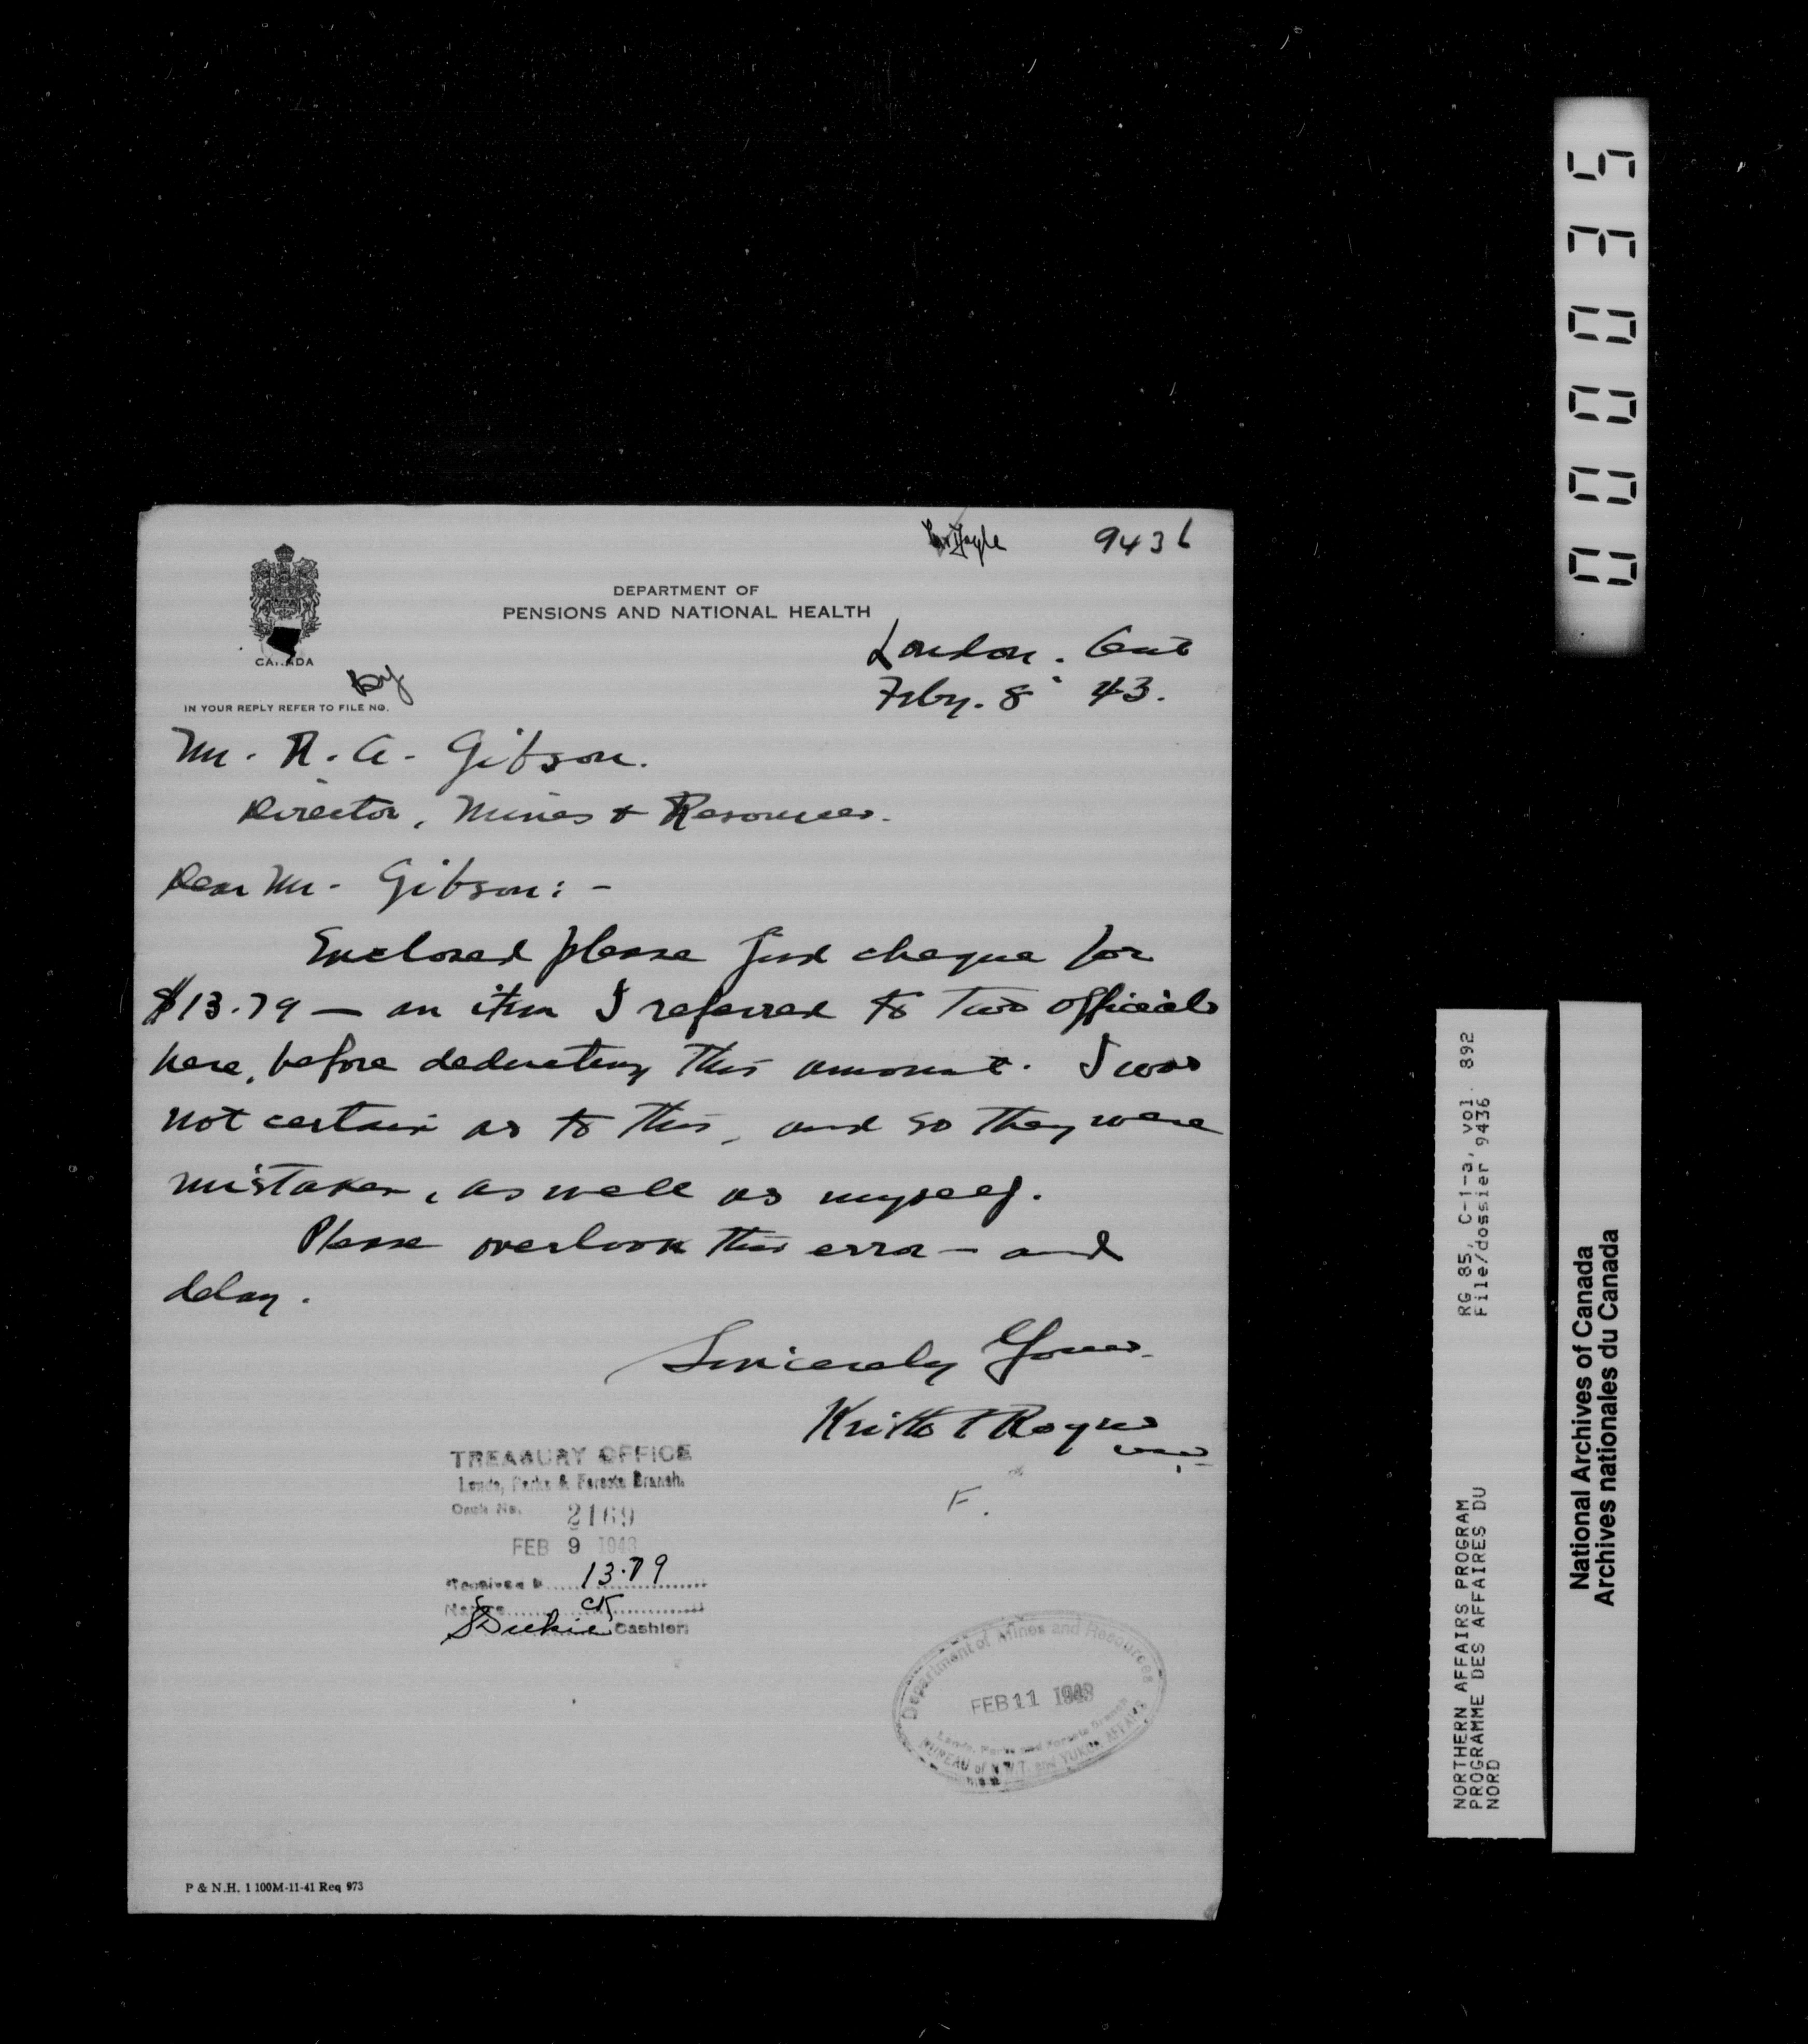 9436
DEPARTMENT OF
PENSIONS AND NATIONAL HEALTH
CANADA
IN YOUR REPLY REFER TO FILE NO.
London. Ont
Feby. 8 43.
Mr. R. A. Gibson.
Director, Mines & Resources.
Dear Mr. Gibson: -
Enclosed please find cheque for
$13.79 — an item I referred to two officials
here, before deducting this amount. I was
not certain as to this, and so they were
mistaken, as well as myself.
Please overlook this error - and
delay.
Sincerely Yours.
TREASURY OFFICE
Lands, Parks & Forests Branch.
Cash No. 2169
FEB 9 1943
Received $ 13.79
Nature ck
Cashier.
F.
Department of Mines and Resources
FEB 11 1943
Lands, Parks and Forests Branch
BUREAU of N.W.T. and YUKON AFFAIRS
P & N.H. 1 100M-11-41 Req 973
000035
RG 85, C-1-a, vol. 892
File/dossier 9436
NORTHERN AFFAIRS PROGRAM
PROGRAMME DES AFFAIRES DU
NORD
National Archives of Canada
Archives nationales du Canada